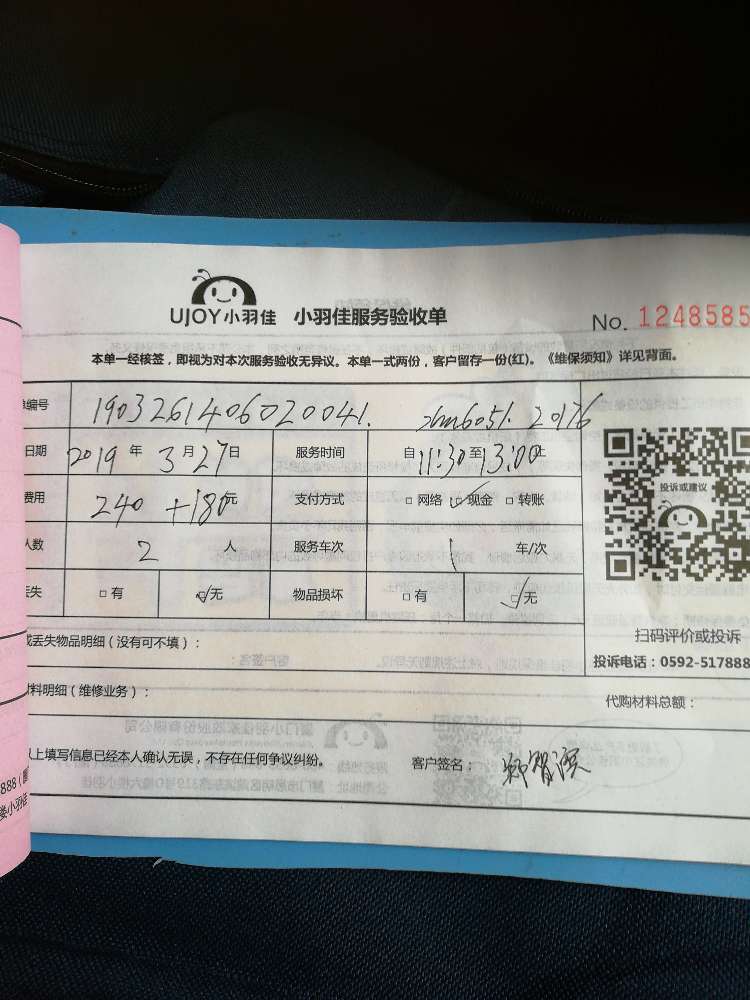 UJOY小羽佳 小羽佳服务验收单
No. 1248585
本单一经核签，即视为对本次服务验收无异议。本单一式两份，客户留存一份(红)。《维保须知》详见背面。
编号 1903261406020041. 20176
日期 2019 年 3 月 27 日 服务时间 自 11:30 至 13:00 止
费用 240 +180 元 支付方式 □ 网络 ☑ 现金 □ 转账
人数 2 人 服务车次 1 车/次
丢失 □ 有 ☑ 无 物品损坏 □ 有 ☑ 无
投诉或建议
扫码评价或投诉
投诉电话：0592-517888
丢失物品明细（没有可不填）：
材料明细（维修业务）：
代购材料总额：
以上填写信息已经本人确认无误，不存在任何争议纠纷。
客户签名：
888
小羽佳